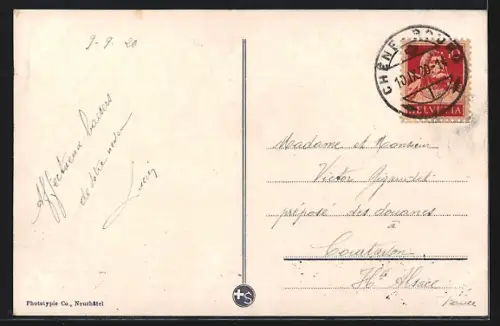 9-9. 20
Affectueux baisers
de votre
CHÊNE-BOUG
10.IX.20
HELVETIA
Madame et Monsieur
Victor
préposé des douanes
à
Hte Alsace
France
Phototypie Co., Neuchâtel
+S